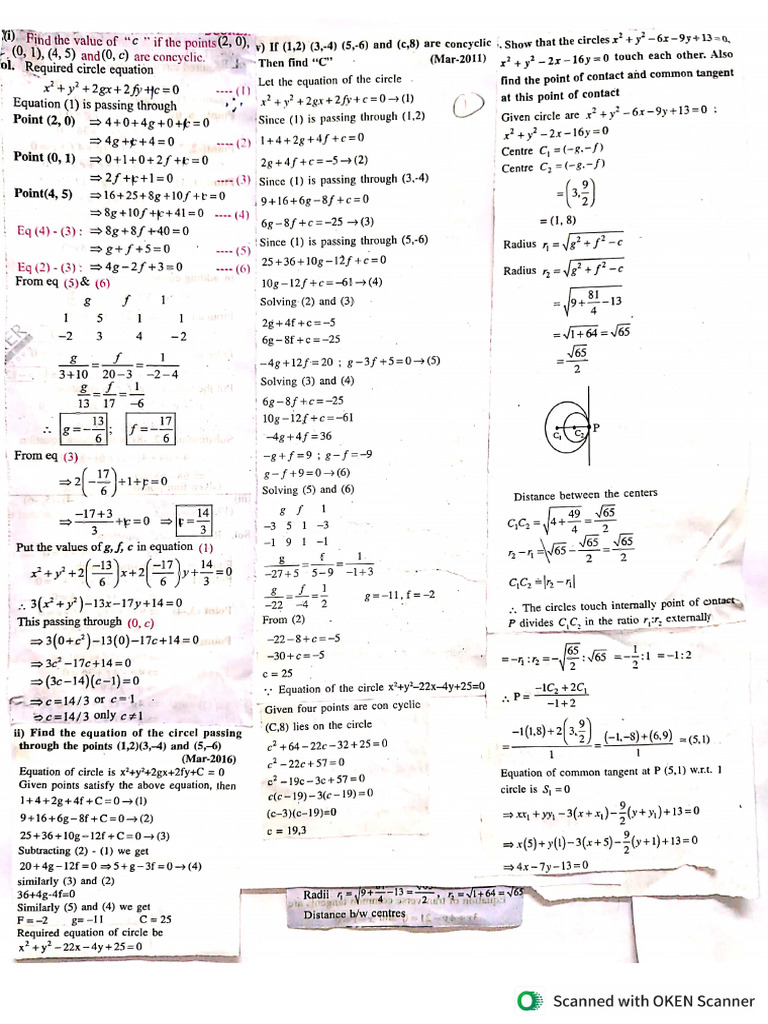 Xi) Find the value of "c" if the points(2, 0),
(0, 1), (4, 5) and(0, c) are concyclic.
ol. Required circle equation
x² + y² + 2gx + 2fy + c = 0 ---- (1)
Equation (1) is passing through
Point (2, 0) ⇒ 4 + 0 + 4g + 0 + c = 0
⇒ 4g + c + 4 = 0 ---- (2)
Point (0, 1) ⇒ 0 + 1 + 0 + 2f + c = 0
⇒ 2f + c + 1 = 0 ---- (3)
Point(4, 5) ⇒ 16 + 25 + 8g + 10f + c = 0
⇒ 8g + 10f + c + 41 = 0 ---- (4)
Eq (4) - (3) : ⇒ 8g + 8f + 40 = 0
⇒ g + f + 5 = 0 ---- (5)
Eq (2) - (3) : ⇒ 4g - 2f + 3 = 0 ---- (6)
From eq (5) & (6)
g f 1
1 5 1 1
-2 3 4 -2
g/(3+10) = f/(20-3) = 1/(-2-4)
g/13 = f/17 = 1/-6
∴ g = -13/6 ; f = -17/6
From eq (3)
⇒ 2(-17/6) + 1 + c = 0
⇒ (-17+3)/3 + c = 0 ⇒ c = 14/3
Put the values of g, f, c in equation (1)
x² + y² + 2(-13/6)x + 2(-17/6)y + 14/3 = 0
∴ 3(x² + y²) - 13x - 17y + 14 = 0
This passing through (0, c)
⇒ 3(0 + c²) - 13(0) - 17c + 14 = 0
⇒ 3c² - 17c + 14 = 0
⇒ (3c - 14)(c - 1) = 0
⇒ c = 14/3 or c = 1
⇒ c = 14/3 only c ≠ 1
ii) Find the equation of the circel passing
through the points (1,2)(3,-4) and (5,-6)
(Mar-2016)
Equation of circle is x²+y²+2gx+2fy+C = 0
Given points satisfy the above equation, then
1 + 4 + 2g + 4f + C = 0 → (1)
9 + 16 + 6g - 8f + C = 0 → (2)
25 + 36 + 10g - 12f + C = 0 → (3)
Subtracting (2) - (1) we get
20 + 4g - 12f = 0 ⇒ 5 + g - 3f = 0 → (4)
similarly (3) and (2)
36+4g-4f=0
Similarly (5) and (4) we get
F = -2 g= -11 C = 25
Required equation of circle be
x² + y² - 22x - 4y + 25 = 0
v) If (1,2) (3,-4) (5,-6) and (c,8) are concyclic
Then find "C" (Mar-2011)
Let the equation of the circle
x² + y² + 2gx + 2fy + c = 0 → (1)
1
Since (1) is passing through (1,2)
1 + 4 + 2g + 4f + c = 0
2g + 4f + c = -5 → (2)
Since (1) is passing through (3,-4)
9 + 16 + 6g - 8f + c = 0
6g - 8f + c = -25 → (3)
Since (1) is passing through (5,-6)
25 + 36 + 10g - 12f + c = 0
10g - 12f + c = -61 → (4)
Solving (2) and (3)
2g + 4f + c = -5
6g - 8f + c = -25
-4g + 12f = 20 ; g - 3f + 5 = 0 → (5)
Solving (3) and (4)
6g - 8f + c = -25
10g - 12f + c = -61
-4g + 4f = 36
-g + f = 9 ; g - f = -9
g - f + 9 = 0 → (6)
Solving (5) and (6)
g f 1
-3 5 1 -3
-1 9 1 -1
g/(-27+5) = f/(5-9) = 1/(-1+3)
g/-22 = f/-4 = 1/2 g = -11, f = -2
From (2)
-22 - 8 + c = -5
-30 + c = -5
c = 25
∵ Equation of the circle x²+y²-22x-4y+25=0
Given four points are con cyclic
(C,8) lies on the circle
c² + 64 - 22c - 32 + 25 = 0
c² - 22c + 57 = 0
c² - 19c - 3c + 57 = 0
c(c - 19) - 3(c - 19) = 0
(c-3)(c-19)=0
c = 19,3
. Show that the circles x² + y² - 6x - 9y + 13 = 0,
x² + y² - 2x - 16y = 0 touch each other. Also
find the point of contact and common tangent
at this point of contact
Given circle are x² + y² - 6x - 9y + 13 = 0 ;
x² + y² - 2x - 16y = 0
Centre C₁ = (-g,-f)
Centre C₂ = (-g,-f)
= (3, 9/2)
= (1, 8)
Radius r₁ = √(g² + f² - c)
Radius r₂ = √(g² + f² - c)
= √(9 + 81/4 - 13)
= √(1 + 64) = √65
= √65/2
C₁ C₂ P
Distance between the centers
C₁C₂ = √(4 + 49/4) = √65/2
r₂ - r₁ = |√65 - √65/2| = √65/2
C₁C₂ = |r₂ - r₁|
∴ The circles touch internally point of contact
P divides C₁C₂ in the ratio r₁:r₂ externally
= -r₁ : r₂ = -√65/2 : √65 = -1/2 : 1 = -1 : 2
∴ P = (-1C₂ + 2C₁)/(-1 + 2)
= (-1(1,8) + 2(3, 9/2))/1 = ((-1,-8) + (6,9))/1 = (5,1)
Equation of common tangent at P (5,1) w.r.t. 1
circle is S₁ = 0
⇒ xx₁ + yy₁ - 3(x + x₁) - 9/2(y + y₁) + 13 = 0
⇒ x(5) + y(1) - 3(x + 5) - 9/2(y + 1) + 13 = 0
⇒ 4x - 7y - 13 = 0
Radii r₁ = √(9 + /4 - 13 = /2 , r₂ = √1 + 64 = √65
Distance b/w centres
Scanned with OKEN Scanner